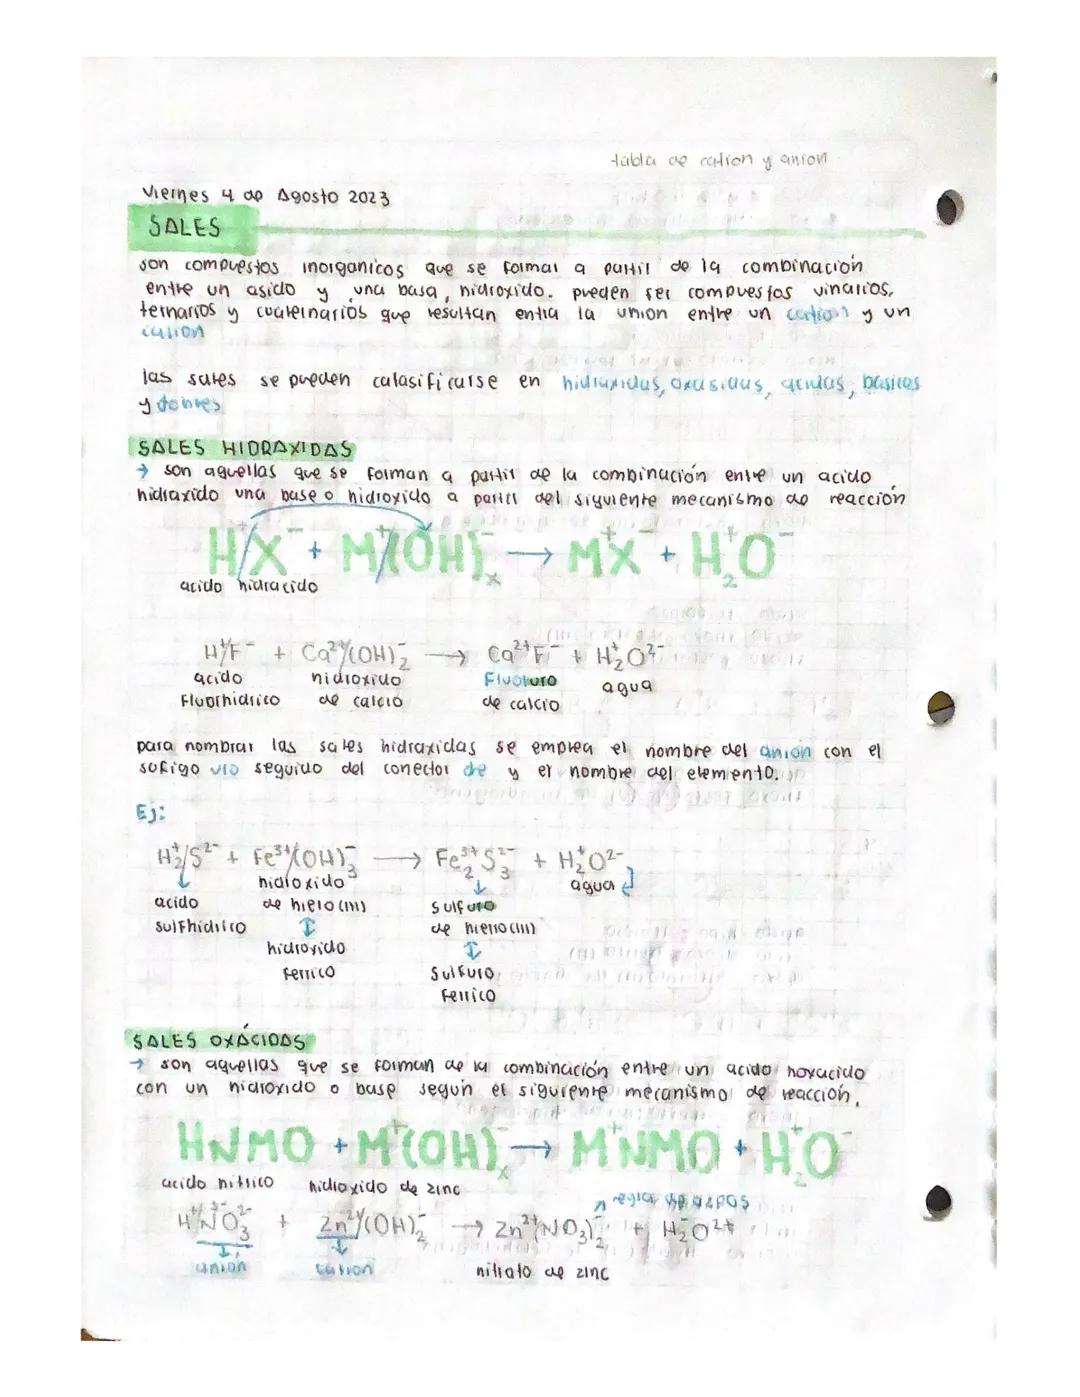 tabla de cation y anion
Viernes 4 de Agosto 2023
SALES
son compuestos inorganicos que se formar a partir de la combinación
entre un asido y una basa, hidroxido. pueden ser compuestos vinarios,
ternarios y cuaternarios que resultan entra la union entre un cation y un
cation
las sales se pueden calasificarse en hidraxidas, oxasidas, acidas, basicas
y dobles
SALES HIDRAXIDAS
→ son aquellas que se forman a partir de la combinación entre un acido
hidraxido una base o hidroxido a partir del siguiente mecanismo de reacción
H⁺/X⁻ + M⁺/(OH)⁻ₓ → M⁺X⁻ + H₂⁺O⁻
acido hidracido
H⁺/F⁻ + Ca²⁺/(OH)₂⁻ → Ca²⁺F⁻ + H₂⁺O²⁻
acido hidroxido Fluoruro agua
Fluorhidrico de calcio de calcio
para nombrar las sales hidraxidas se emplea el nombre del anion con el
sufigo uro seguido del conector de y el nombre del elemento.
Ej:
H₂⁺/S²⁻ + Fe³⁺/(OH)₃⁻ → Fe₂³⁺S₃²⁻ + H₂⁺O²⁻
hidroxido agua
acido de hiero (III) Sulfuro
sulfhidrico de hierro (III)
hidroxido
ferrico Sulfuro
Ferrico
SALES OXÁCIDAS
→ son aquellas que se forman de la combinación entre un acido hoxacido
con un hidroxido o base segun el siguiente mecanismo de reacción.
HNMO + M⁺(OH)⁻ₓ → M⁺NMO + H₂⁺O⁻
acido nitrico hidroxido de zinc
regla de aspas
H⁺/N³⁻O₃²⁻ + Zn²⁺/(OH)₂⁻ → Zn²⁺(NO₃)₂⁻ + H₂⁻O²⁺
anion cation nitrato de zinc